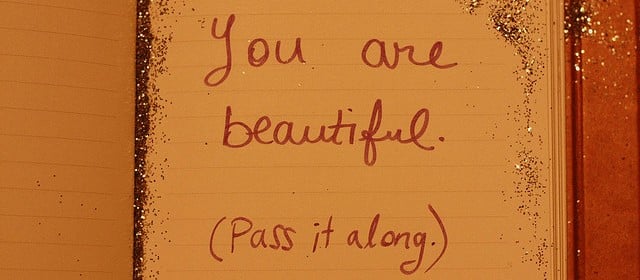 You are
beautiful.
(Pass it along.)